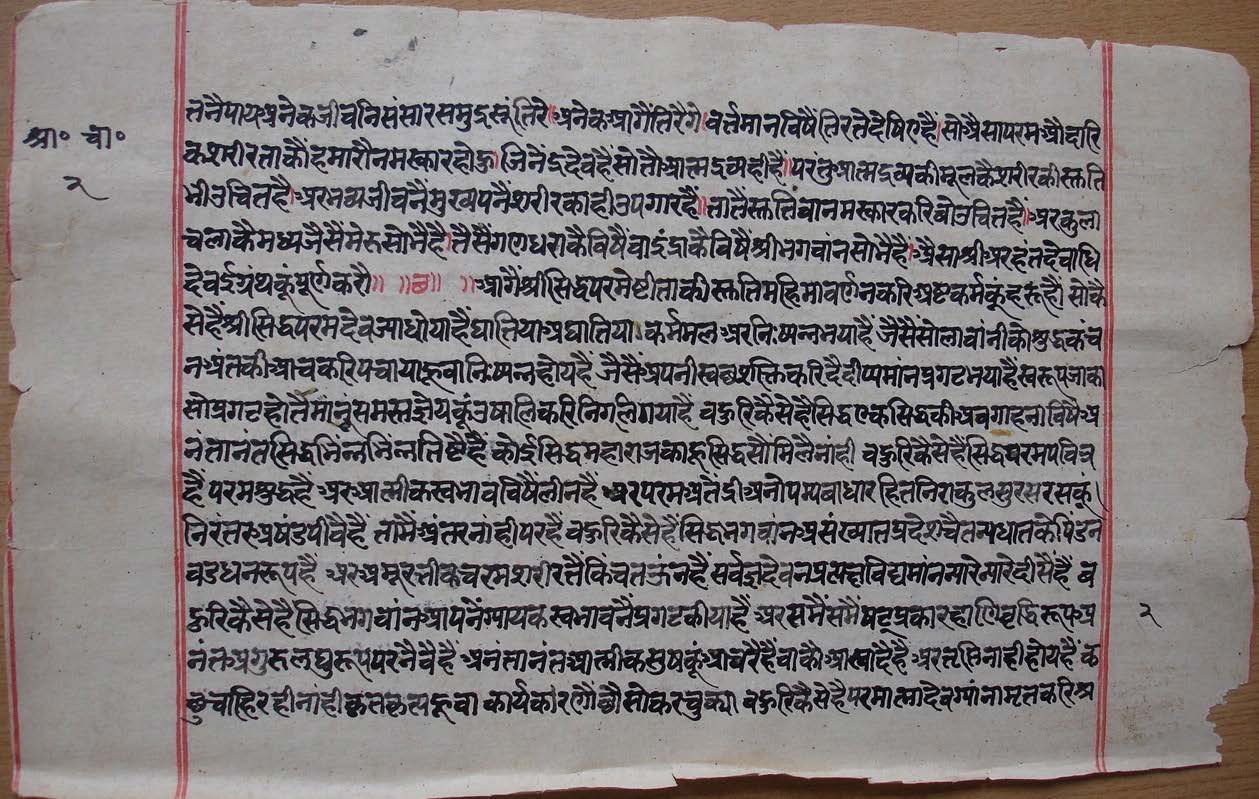 श्रा० चा०
२
तनैपाय अनेक जीव निसंसार समुद्र सूं तिरे। अनेक आगैं तिरैगे। वर्त्तमान विषैं तिरते देषिए हैं। सो अैसा परम औदारि
क शरीर ताकौं हमारौ नमस्कार होऊ। जिनेंद्र देव हैं सो तौ आत्मद्रव्य ही हैं। परंतु आत्मद्रव्य की मूलकै शरीर की स्तुति
भी उचित है। अर भव्य जीवनै मुख्यपनैं शरीर का ही उपगार है। तातैं स्तुति वा नमस्कार करिबो उचित है। अर कुला
चला कै मध्य जैसैं मेरु सोभै है। तैसैं गणधरा कै विषैं वा इंद्रा कै विषैं श्री भगवांन सोभै है। अैसा श्री अरहंत देवाधि
देव ई ग्रंथ कूं पूर्ण करौ॥ ॥छ॥ ॥आगैं श्री सिद्ध परमेष्टी ताकी स्तुति महिमा वर्णन करि अष्ट कर्म कूं हरूं हौं। सो कै
से हैं श्री सिद्ध परम देव ज्या धोया है घातिया अघातिया कर्म मल अर निःपन्न भया हैं जैसैं सोला वांनी को शुद्ध कंच
न अंत की आच करि पचाया हूवा निःपन्न होय हैं जैसैं अपनी स्वछ शक्ति करि दैदीप्यमांन प्रगट भया हैं स्वरूप जाका
सो प्रगट होतैं मांनूं समस्त ज्ञेय कूं उषालि करि निगलि गया है बहुरि कैसे है सिद्ध एक सिद्ध की अवगाहना विषैं अ
नंतानंत सिद्ध भिन्न भिन्न तिष्टै हैं कोई सिद्ध महाराज काहू सिद्ध सौं मिलै नांही बहुरि कैसे हैं सिद्ध परम पवित्र
हैं परम शुद्ध हैं अरु आत्मीक स्वभाव विषैं लीन हैं अर परम अतेंद्री अनोपम्य बाधा रहित निराकुल सुरस रस कूं
निरंतर अषंड पीवै हैं तामैं अंतर नांही परै हैं बहुरि कैसे हैं सिद्ध भगवांन असंख्यात प्रदेश चैतन्य धात के पिंड न
वड घन रूप हैं अर अमूरतीक चरम शरीर तैं किंचत ऊंन हैं सर्वज्ञ देव न प्रत्यक्ष विद्यमांन न्यारे न्यारे दीसैं हैं ब
हुरि कैसे है सिद्ध भगवांन आपनैं ग्यायक स्वभाव नैं प्रगट कीया हैं अर समैं समैं षट् प्रकार हाणि वृद्धि रूप अ
नंत अगुरुलघु रूप परनैवै हैं अनंतानंत आत्मीक सुष कूं आचरै हैं वा कौ आस्वादै हैं अर तृप्ति नांही होय हैं क
छु चाहि रही नांही कृतकृत्य हूवा कार्य करणौं छौ सो कर चुक्या बहुरि कैसे है परमात्मा देव ग्यांनामृत करि श्र
२